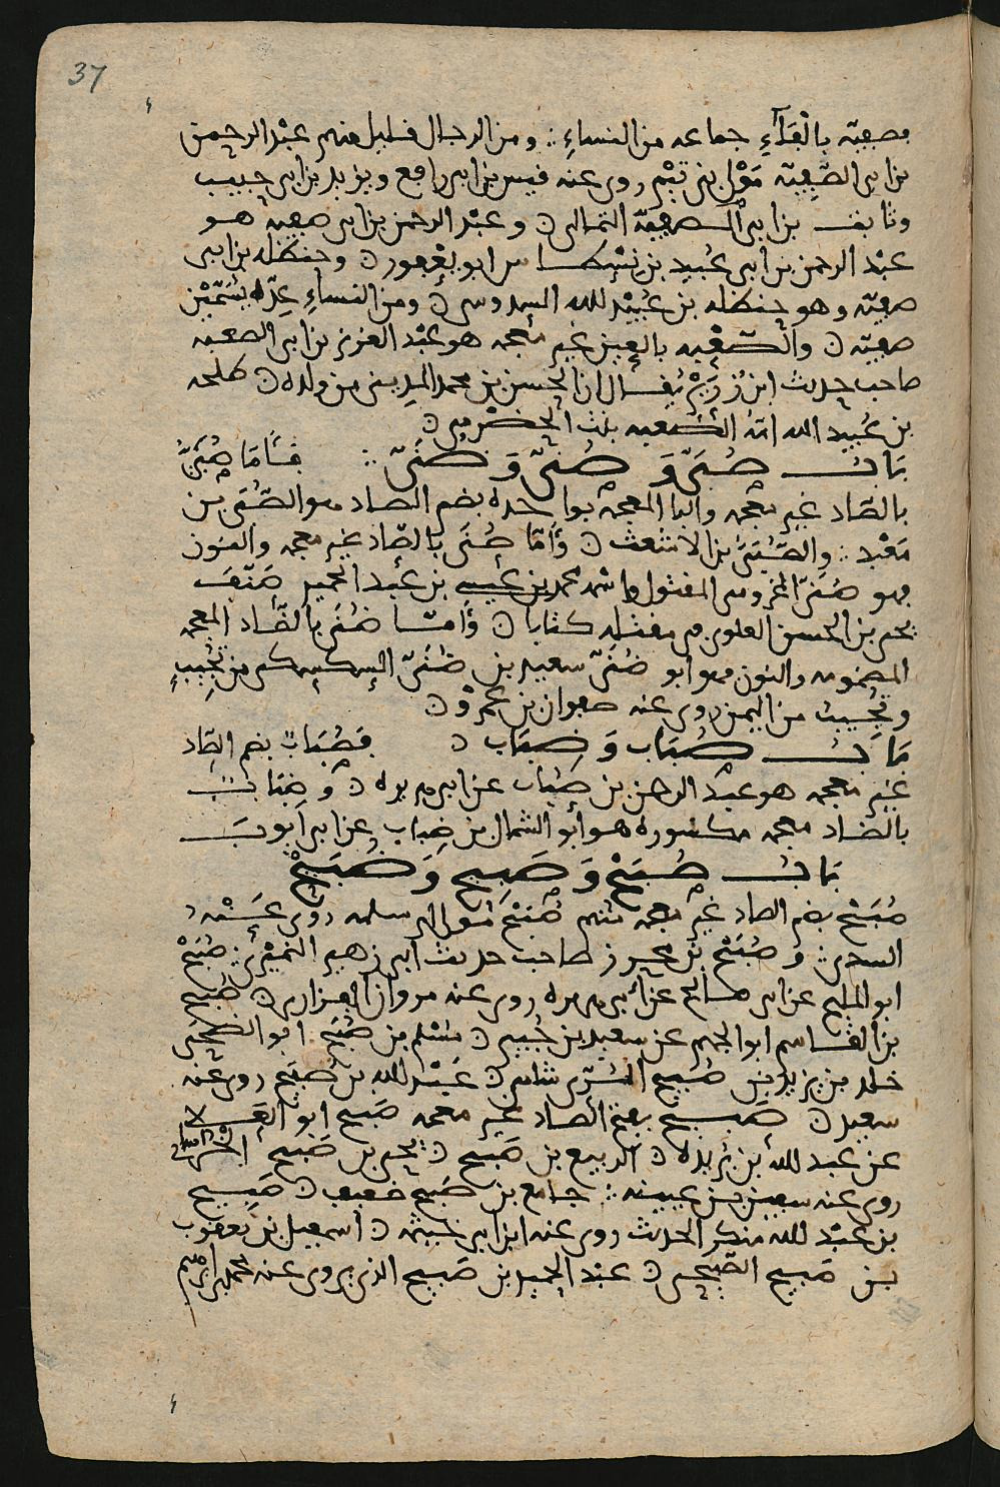 37
فصفيّة بالفاء جماعه من النساءِ ؞ ومن الرجال قليل منهم عبْد الرحمن
بن ابى الصَّفِيّة مَوْلى بنى تميْم روى عنه قيس بن ابى رافع ويزيد بن ابى حبيب
وثابت بن ابى الصفيّة الثمالى ن وعبْد الرحمن بن ابى صفيه هو
عبْد الرحمن بن ابى عُبيد بن ابو يعفور ن وحنظله بن ابى
صفيّه وهو حنظله بن عُبيْد لله السدوسى ن ومن النساءِ عدّه يسمّيْن
صفيّه ن والصَّعْبه بالعين غير معجمه هو عبْد العزيز بن ابى الصعبه
صاحب حديث ابن زُرَيْر يُقال ان الحسن بن محمد المدينى من ولده ن طلحه
بن عُبيد الله امّه الصَّعبه بنت الحضْرمى ن
بَاب صُبَىّ وَ صُنَىّ وَ ضُنَىّ ؞ فأمّا صُبَىٌّ
بالصّاد غير معجمه والبا المعجمه بواحده بضم الصاد هو الصُّبَى بن
مَعْبد ؞ والصُّبَىُّ بن الاشعث ن وَأمّا صُنَى بالصّاد غير معجمه والنون
فهو صُنَىّ المقتول محمد بن عيسى بن عبْد الحميد صَنّفَ
يحيى بن الحسن العلوى فى مقتله كتابا ن وَأمّا ضُنَى بالضّاد المعجمه
المضمومه والنون فهو ابو ضُنَىّ سعيد بن ضُنَىّ السكسكى من تُجيبٍ
وتُجيب من اليمن روى عنه صفوان بن عَمرو ن
بَاب صُبَاب وَ ضِبَاب ن فصُبَابٌ بضم الصّاد
غير معجمه هو عبْد الرحمن بن صُبَاب عن ابى هريره ن وضِبَابٌ
بالضاد معجمه مكسوره هو أبو الشمال بن ضِباب عن ابى ايّوب
بَاب صُبَيْح وَ صَبِيح وَ ضُبَيْح
صُبَيْح بضم الصاد غير معجمه منهم صُبَيْح مَولى ام سلمه روى عنه
السدى ؞ وَ صُبَيْح بن محرز صاحب حديث ابى زهير النميْرى ؞ صُبَيْح
ابو المليح عن ابى صالح عن ابى هريره روى عنه مروان الفزارى ن صُبيح
بن القاسم ابو الجهم عن سعيد بن جُبير ن مُسْلم بن صُبَيْح ابو الضحى
خلد بن يزيد بن صُبيح المُرّى شامى ن عُبيْد لله بن صُبَيْح روى عنه
سعيد ن صَبيح بفتح الصاد غير معجمه صَبيح ابو العَلا
عن عبد لله بن بُريده ن الربيع بن صَبيح ن يحيى بن صَبيح الخراسانى
روى عنه سفين بن عيينه ؞ جامع بن صَبيح ضعيف ن صَبيح
بن عبْد لله منكر الحديث روى عنه ابن ابى خيثمه ن اسمعيل بن يعقوب
بن صَبيح الصَّبيحى ن عبْد الحميد بن صَبيح الذى يروى عنه محمد بن ابرهيم